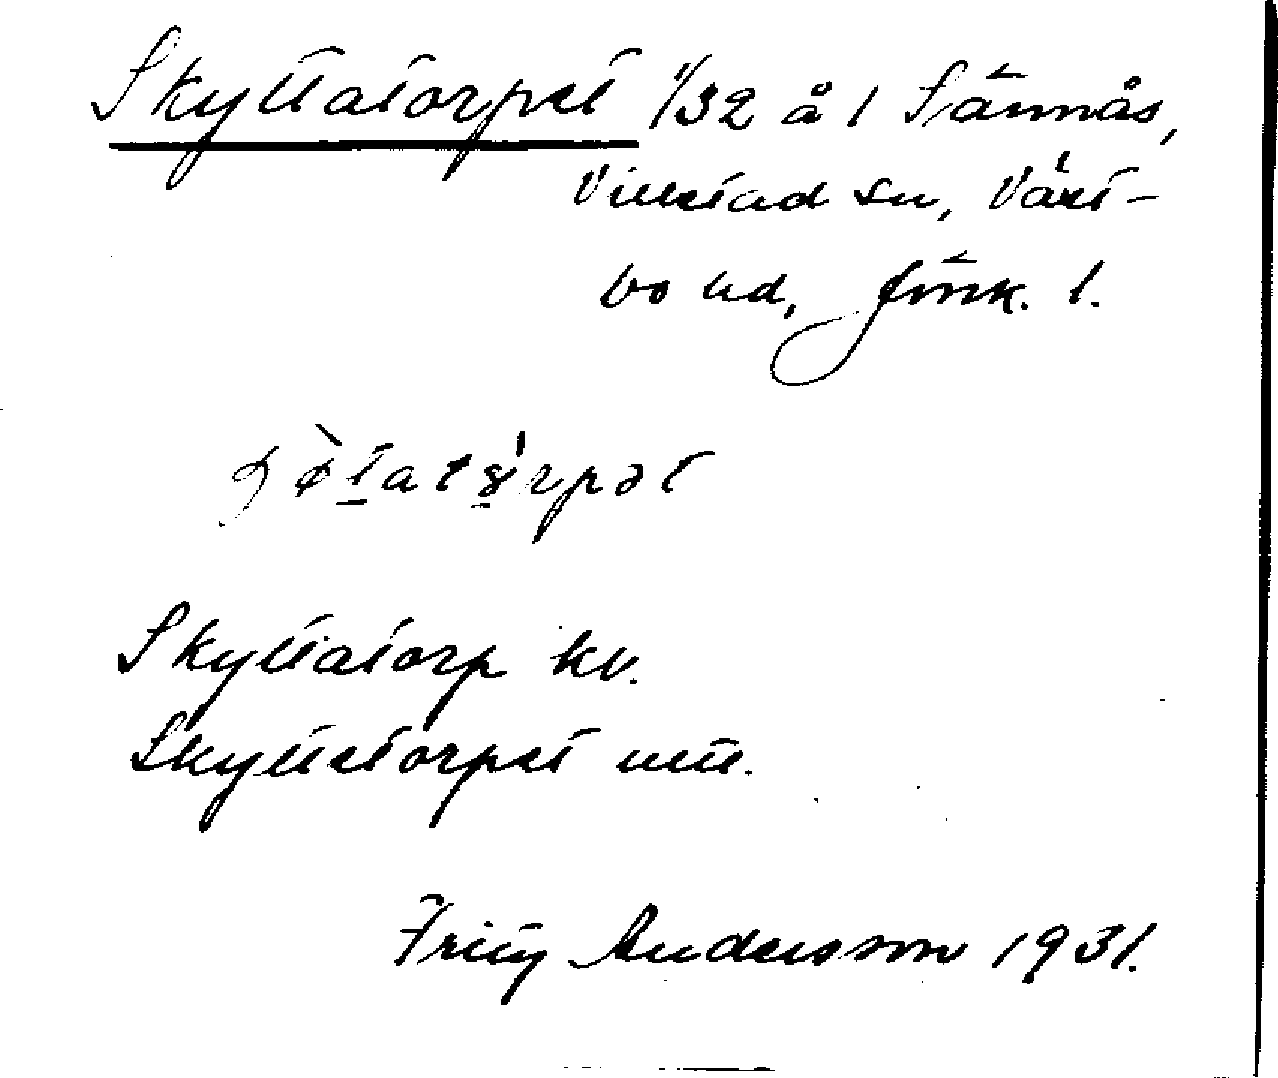 Skyttatorpet 1/32 å 1 Sännås,
Villstad sn, Väst-
bo hd, Jönk. l.
Skyttatorp kv.
Skyttetorpet utt.
Fritz Andersson 1931.